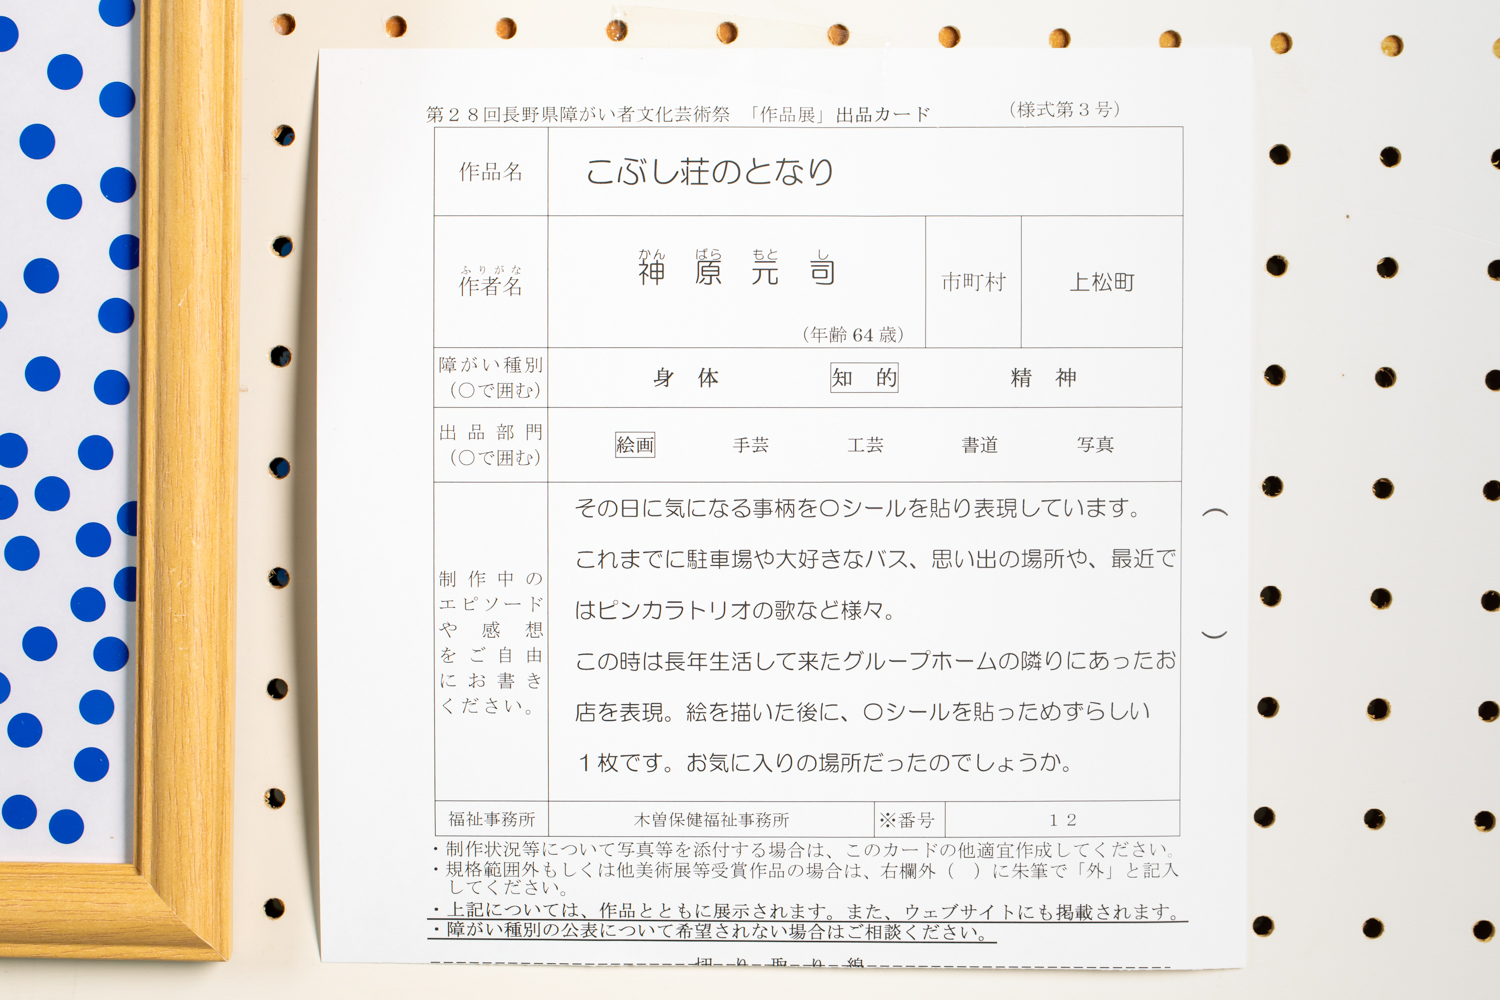 第２８回長野県障がい者文化芸術祭　「作品展」出品カード　（様式第３号）
作品名　こぶし荘のとなり
ふりがな　かん　ばら　もと　し
作者名　神　原　元　司　市町村　上松町
（年齢 64 歳）
障がい種別　身　体　知　的　精　神
（〇で囲む）
出品部門　絵画　手芸　工芸　書道　写真
（〇で囲む）
制作中の
エピソード
や感想
をご自由
にお書き
ください。
その日に気になる事柄を〇シールを貼り表現しています。
これまでに駐車場や大好きなバス、思い出の場所や、最近で
はピンカラトリオの歌など様々。
この時は長年生活して来たグループホームの隣りにあったお
店を表現。絵を描いた後に、〇シールを貼っためずらしい
１枚です。お気に入りの場所だったのでしょうか。
（　）
福祉事務所　木曽保健福祉事務所　※番号　１２
・制作状況等について写真等を添付する場合は、このカードの他適宜作成してください。
・規格範囲外もしくは他美術展等受賞作品の場合は、右欄外（　）に朱筆で「外」と記入
してください。
・上記については、作品とともに展示されます。また、ウェブサイトにも掲載されます。
・障がい種別の公表について希望されない場合はご相談ください。
切り取り線